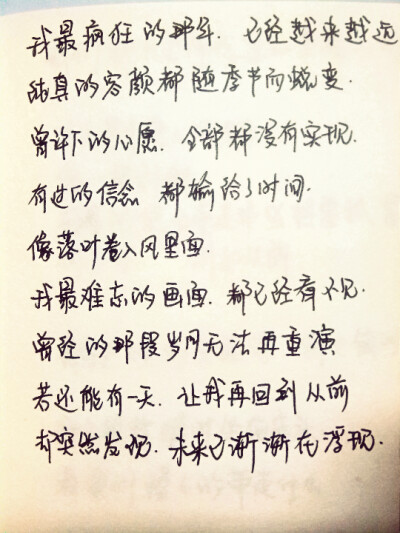 我最疯狂的那年. 已经越来越远
纯真的容颜都随季节而蜕变.
曾许下的心愿. 全部都没有实现.
有过的信念 都输给了时间.
像落叶卷入风里面.
我最难忘的画面. 都已经看不见.
曾经的那段岁月无法再重演
若还能有一天. 让我再回到从前
却突然发现. 未来已渐渐在浮现.